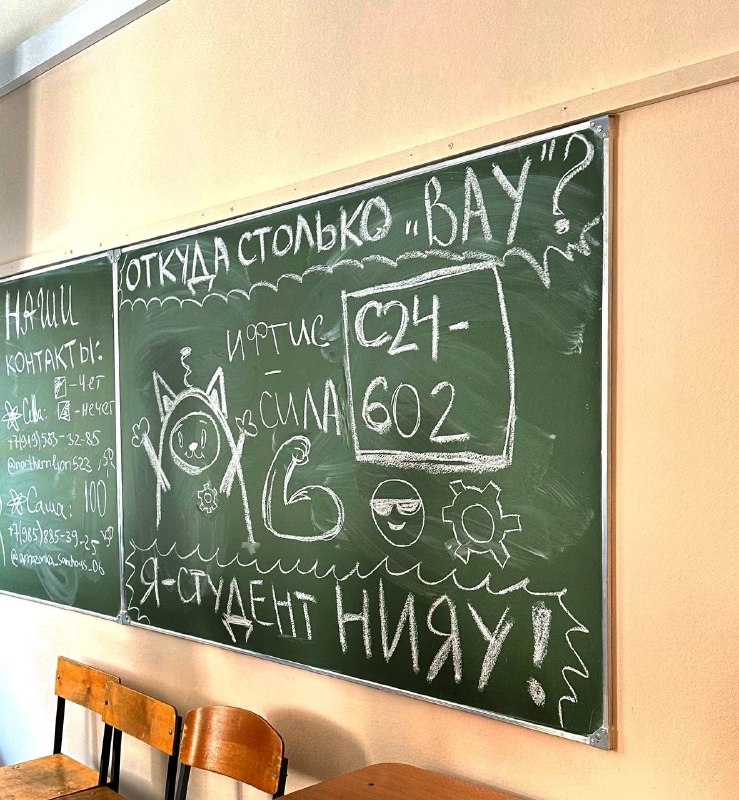 НАШИ
КОНТАКТЫ:
- Чет
Сева: - Нечет
+7(919)583-32-85
@northernlion523
Саша: 100
+7(985)885-39-25
ОТКУДА СТОЛЬКО „ВАУ"?
ИФТИС
-
СИЛА
С24-
602
Я-СТУДЕНТ НИЯУ!